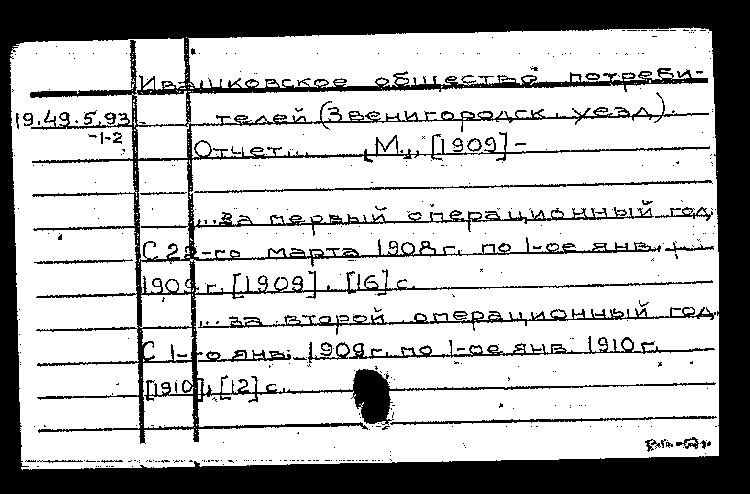 Ивашковское общество потреби-
19.49.5.93 телей (Звенигородск. уезд).
-1-2
Отчет... [М.], [1909] -
...за первый операционный год
С 22-го марта 1908 г. по 1-ое янв.
1909 г. [1909]. [16] с.
...за второй операционный год.
С 1-го янв. 1909 г. по 1-ое янв. 1910 г.
[1910], [12] с.